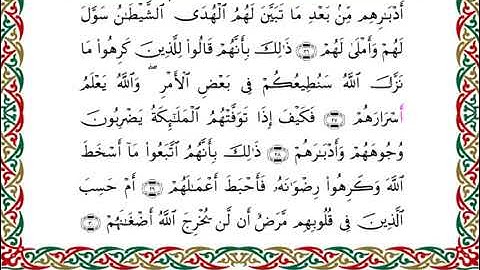 أَدْبَـٰرِهِم مِّنۢ بَعْدِ مَا تَبَيَّنَ لَهُمُ ٱلْهُدَى ٱلشَّيْطَـٰنُ سَوَّلَ
لَهُمْ وَأَمْلَىٰ لَهُمْ ﴿٢٥﴾ ذَٰلِكَ بِأَنَّهُمْ قَالُوا۟ لِلَّذِينَ كَرِهُوا۟ مَا
نَزَّلَ ٱللَّهُ سَنُطِيعُكُمْ فِى بَعْضِ ٱلْأَمْرِ ۖ وَٱللَّهُ يَعْلَمُ
أَسْرَارَهُمْ ﴿٢٦﴾ فَكَيْفَ إِذَا تَوَفَّتْهُمُ ٱلْمَلَـٰٓئِكَةُ يَضْرِبُونَ
وُجُوهَهُمْ وَأَدْبَـٰرَهُمْ ﴿٢٧﴾ ذَٰلِكَ بِأَنَّهُمُ ٱتَّبَعُوا۟ مَآ أَسْخَطَ
ٱللَّهَ وَكَرِهُوا۟ رِضْوَٰنَهُۥ فَأَحْبَطَ أَعْمَـٰلَهُمْ ﴿٢٨﴾ أَمْ حَسِبَ
ٱلَّذِينَ فِى قُلُوبِهِم مَّرَضٌ أَن لَّن يُخْرِجَ ٱللَّهُ أَضْغَـٰنَهُمْ ﴿٢٩﴾